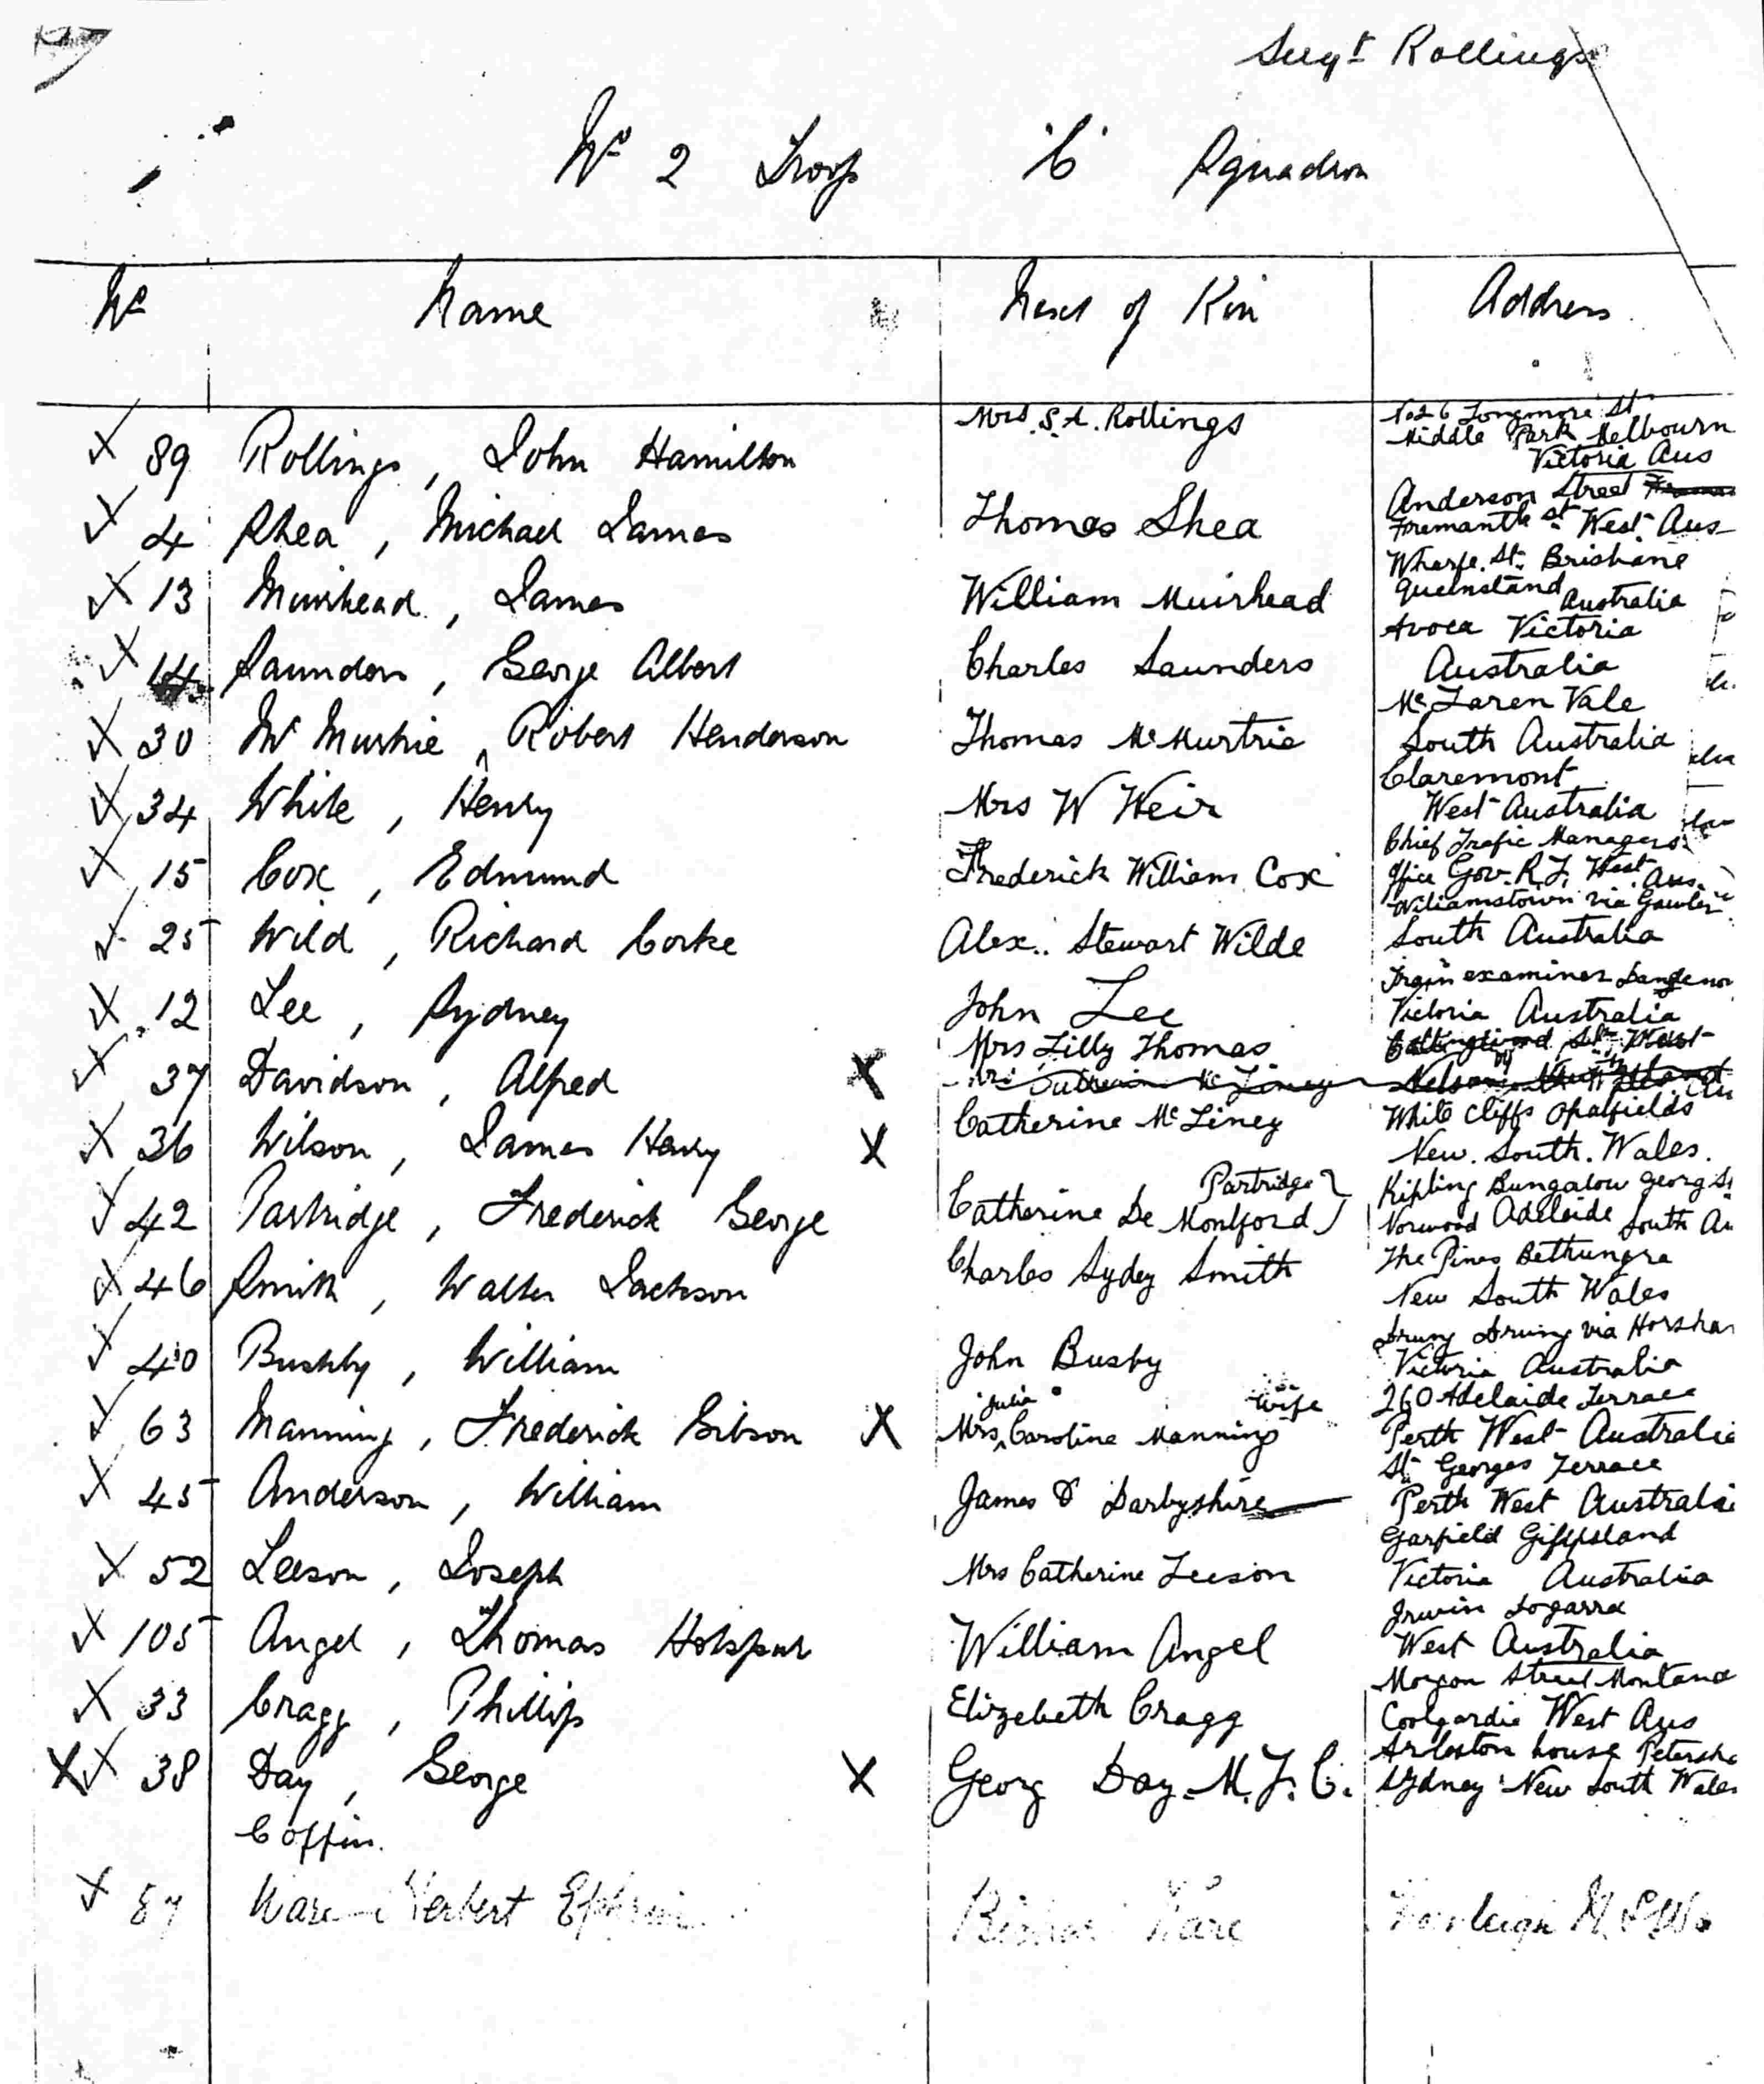 Sergt Rollings
No 2 Troop 'C' Squadron
No Name Next of Kin Address
89 Rollings, John Hamilton Mrs. S. A. Rollings No 26 Longmore St
Middle Park Melbourn
Victoria Aus
4 Shea, Michael James Thomas Shea Anderson Street
Fremantle st West Aus
13 Muirhead, James William Muirhead Wharfe. St. Brisbane
Queensland Australia
14 Saunders, George Albert Charles Saunders Avoca Victoria
Australia
30 McMurtrie, Robert Henderson Thomas McMurtrie Mc Laren Vale
South Australia
34 White, Henry Mrs W Weir Claremont
West Australia
15 Cox, Edmund Frederick William Cox Chief Trafic Managers
Office Gov. R. West Aus.
25 Wild, Richard Corke Alex. Stewart Wilde Wiliamstown via Gawler
South Australia
12 Lee, Sydney John Lee Train examiner Dandenon
Victoria Australia
37 Davidson, Alfred X Mrs Lilly Thomas Collingwood St West
36 Wilson, James Henry X Catherine Mc Liney White Cliffs Opalfields
New. South. Wales.
42 Partridge, Frederick George Catherine De Montford Partridge } Kipling Bungalow Georg St
Norwood Adelaide South Au
46 Smith, Walter Jackson Charles Sydey Smith The Pines Bethungra
New South Wales
40 Bushby, William John Busby Drung Drung via Horsha
Victoria Australia
63 Manning, Frederick Gibson X Mrs Julia Caroline Manning wife 260 Adelaide Terrace
Perth West Australia
45 Anderson, William James D Darbyshire St Georges Terrace
Perth West Australia
52 Leeson, Joseph Mrs Catherine Leeson Garfield Gippsland
Victoria Australia
105 Angel, Thomas Hotspur William Angel Irwin Dogarra
West Australia
33 Cragg, Phillip Elizebeth Cragg Morgan Street Montana
Coolgardie West Aus
X 38 Day, George X Georg Day. M. L. C. Arleston house Petersha
Sydney New South Wales
Coffin.
87 Ware Herbert Ephraim Ware N.S.W.